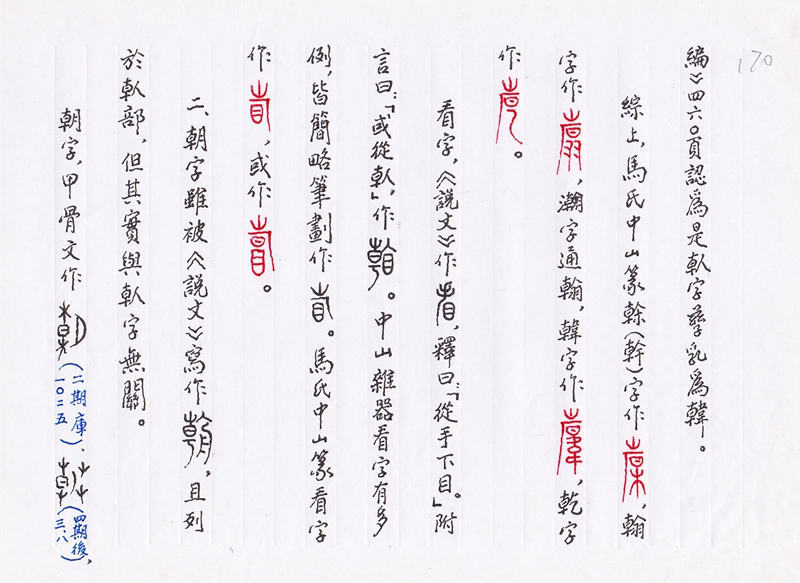 170
編》四六〇頁認爲是倝字孳乳爲韓。
綜上,馬氏中山篆榦(幹)字作,翰
字作,瀚字通翰,韓字作,乾字
作。
看字,《說文》作,釋曰:「從手下目。」附
言曰:「或從倝」,作。中山雜器看字有多
例,皆簡略筆劃作。馬氏中山篆看字
作,或作。
二、朝字雖被《說文》寫作,且列
於倝部,但其實與倝字無關。
朝字,甲骨文作(二期庫一〇二五)、(四期後,三.八)